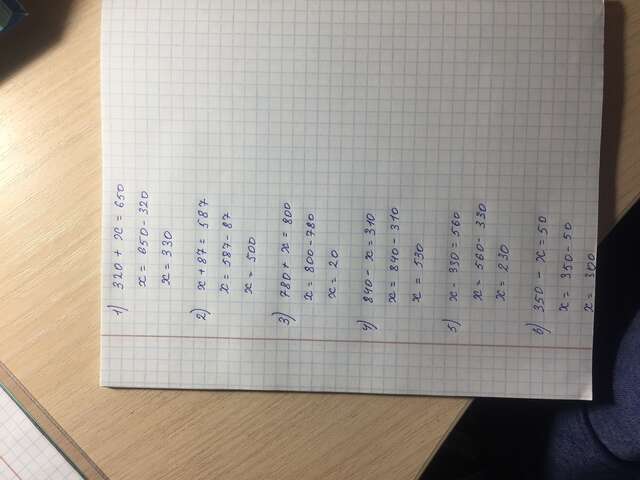 1) 320 + x = 650
x = 650 - 320
x = 330
2) x + 87 = 587
x = 587 - 87
x = 500
3) 780 + x = 800
x = 800 - 780
x = 20
4) 840 - x = 310
x = 840 - 310
x = 530
5) x - 330 = 560
x = 560 - 330
x = 230
6) 350 - x = 50
x = 350 - 50
x = 300